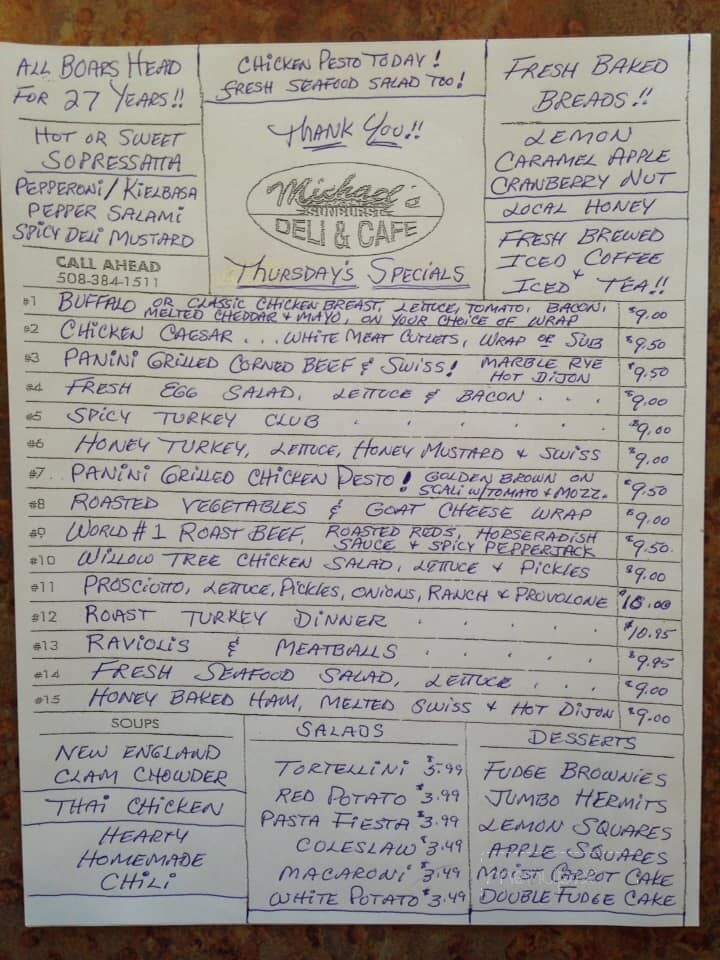 ALL BOARS HEAD
FOR 27 YEARS!!
HOT OR SWEET
SOPRESSATTA
PEPPERONI/KIELBASA
PEPPER SALAMI
SPICY DELI MUSTARD
CALL AHEAD
508-384-1511
CHICKEN PESTO TODAY!
FRESH SEAFOOD SALAD TOO!
THANK YOU!!
Michael's
SUNBURST
DELI & CAFE
THURSDAY'S SPECIALS
FRESH BAKED
BREADS!!
LEMON
CARAMEL APPLE
CRANBERRY NUT
LOCAL HONEY
FRESH BREWED
ICED COFFEE
+
ICED TEA!!
#1 BUFFALO OR CLASSIC CHICKEN BREAST, LETTUCE, TOMATO, BACON,
MELTED CHEDDAR & MAYO, ON YOUR CHOICE OF WRAP $9.00
#2 CHICKEN CAESAR... WHITE MEAT CUTLETS, WRAP OR SUB $9.50
#3 PANINI GRILLED CORNED BEEF & SWISS! MARBLE RYE
HOT DIJON $9.50
#4 FRESH EGG SALAD, LETTUCE & BACON . . . $9.00
#5 SPICY TURKEY CLUB . . . . . . $9.00
#6 HONEY TURKEY, LETTUCE, HONEY MUSTARD & SWISS $9.00
#7 PANINI GRILLED CHICKEN PESTO! GOLDEN BROWN ON
SCALI W/TOMATO & MOZZ. $9.50
#8 ROASTED VEGETABLES & GOAT CHEESE WRAP $9.00
#9 WORLD #1 ROAST BEEF, ROASTED REDS, HORSERADISH
SAUCE & SPICY PEPPERJACK $9.50
#10 WILLOW TREE CHICKEN SALAD, LETTUCE & PICKLES $9.00
#11 PROSCIUTTO, LETTUCE, PICKLES, ONIONS, RANCH & PROVOLONE $10.00
#12 ROAST TURKEY DINNER . . . . . $10.95
#13 RAVIOLIS & MEATBALLS . . . . . $9.95
#14 FRESH SEAFOOD SALAD, LETTUCE . . . $9.00
#15 HONEY BAKED HAM, MELTED SWISS & HOT DIJON $9.00
SOUPS
NEW ENGLAND
CLAM CHOWDER
THAI CHICKEN
HEARTY
HOMEMADE
CHILI
SALADS
TORTELLINI $5.99
RED POTATO $3.99
PASTA FIESTA $3.99
COLESLAW $3.49
MACARONI $3.49
WHITE POTATO $3.49
DESSERTS
FUDGE BROWNIES
JUMBO HERMITS
LEMON SQUARES
APPLE SQUARES
MOIST CARROT CAKE
DOUBLE FUDGE CAKE